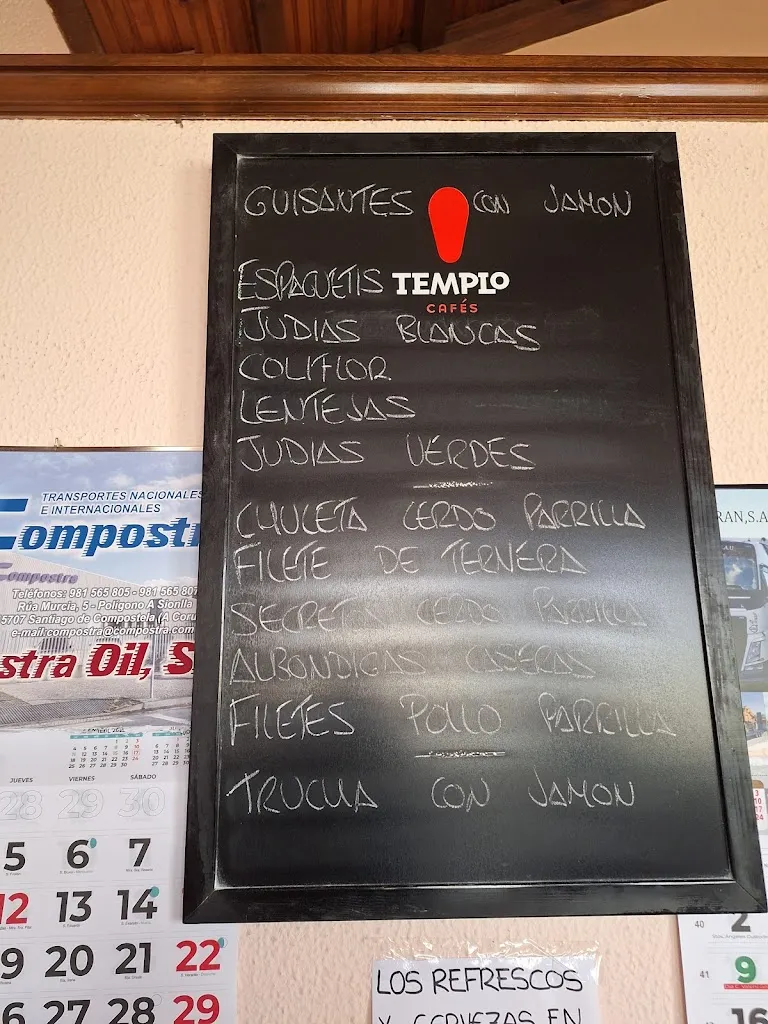 GUISANTES CON JAMON
ESPAGUETIS
TEMPLO
CAFÉS
JUDIAS BLANCAS
COLIFLOR
LENTEJAS
JUDIAS VERDES
CHULETA CERDO PARRILLA
FILETE DE TERNERA
SECRETO CERDO PARRILLA
ALBONDIGAS CASERAS
FILETES POLLO PARRILLA
TRUCHA CON JAMON
TRANSPORTES NACIONALES
E INTERNACIONALES
Compostra
Teléfonos: 981 565 805 - 981 565 807
Rúa Murcia, 5 - Polígono A Sionlla
5707 Santiago de Compostela (A Coru
e-mail:compostra@compostra.com
stra Oil, S
JUEVES VIERNES SÁBADO
28 29 30
5 6 7
12 13 14
9 20 21 22
6 27 28 29
RAN,S.A
40 2
41 9
16
LOS REFRESCOS
Y CERVEZAS EN